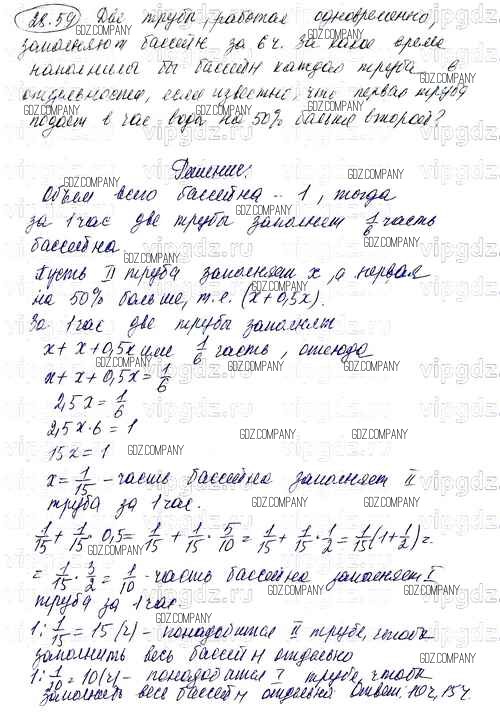 28.59 Две трубы, работая одновременно,
заполняют бассейн за 6 ч. За какое время
наполнила бы бассейн каждая труба в
отдельности, если известно, что первая труба
подает в час воды на 50% больше второй?
Решение:
Объем всего бассейна - 1, тогда
за 1 час две трубы заполнят 1/6 часть
бассейна
Пусть II труба заполняет x, а первая
на 50% больше, т.е. (x+0,5x).
За 1 час две трубы заполнят
x + x+0,5x или 1/6 часть, отсюда
x + x + 0,5x = 1/6
2,5x = 1/6
2,5x·6 = 1
15x = 1
x = 1/15 - часть бассейна заполняет II
труба за 1 час.
1/15 + 1/15 · 0,5 = 1/15 + 1/15 · 5/10 = 1/15 + 1/15 · 1/2 = 1/15(1+1/2) =
= 1/15 · 3/2 = 1/10 - часть бассейна заполняет I
труба за 1 час.
1 : 1/15 = 15 (ч) - понадобится II трубе, чтобы
заполнить весь бассейн отдельно
1 : 1/10 = 10 (ч) - понадобится I трубе, чтобы
заполнить весь бассейн отдельно. Ответ: 10 ч, 15 ч.
GDZ.COMPANY
vipgdz.ru